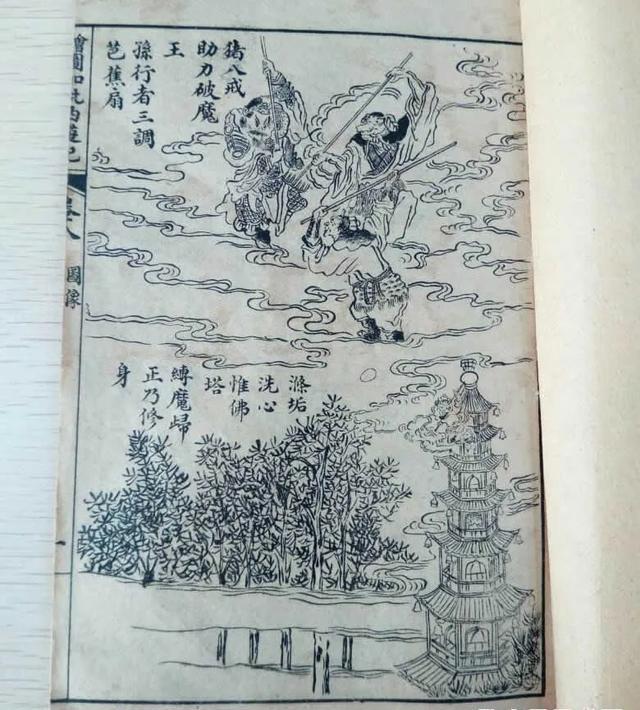 猪八戒
助力破魔
王
孫行者三調
芭蕉扇
滌垢
洗心
惟佛
塔
縛魔歸
正乃修
身
繪圖加批西遊記
卷八
圖像
一